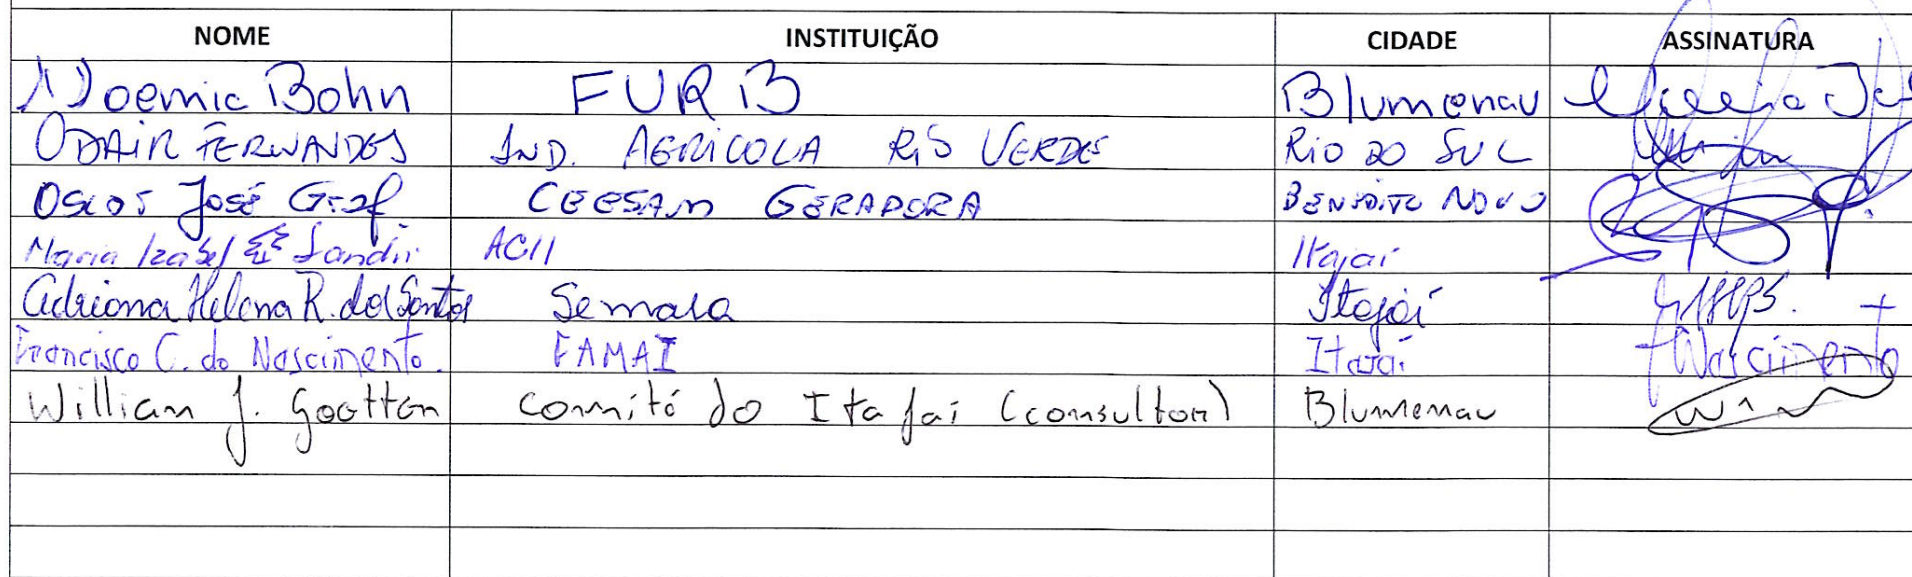 NOME INSTITUIÇÃO CIDADE ASSINATURA
Noemia Bohn FURB Blumenau
ODAIR FERNANDES IND. AGRICOLA RIO VERDES RIO DO SUL
José Graf CEESAM GERADORA BENEDITO NOVO
Maria Izabel Sandri ACII Itajaí
Adriana Helena R. dos Santos Semasa Itajaí
Francisco C. do Nascimento. FAMAI Itajaí Nascimento
William J. Gootton Comitê do Itajaí (consultor) Blumenau